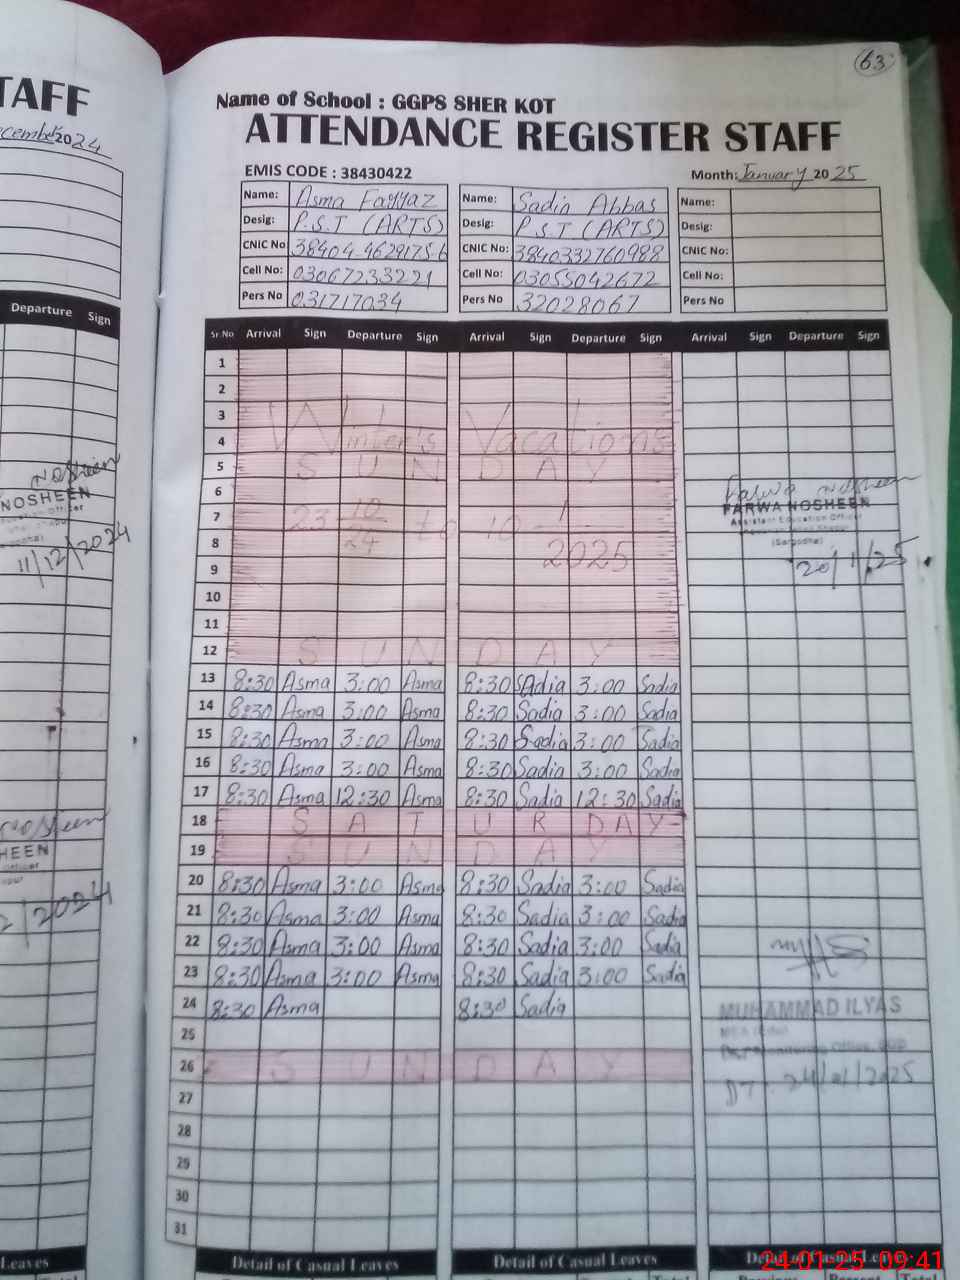 TAFF
ecember 2024
Departure Sign
Nosheen
NOSHEEN
11/12/2024
Nosheen
HEEN
2/2024
Leaves
63
Name of School : GGPS SHER KOT
ATTENDANCE REGISTER STAFF
EMIS CODE : 38430422 Month: January 2025
Name: Asma Fayyaz Name: Sadia Abbas Name:
Desig: P.S.T (ARTS) Desig: P.S.T (ARTS) Desig:
CNIC No 38404-4629175-6 CNIC No: 3840332760988 CNIC No:
Cell No: 03067233221 Cell No: 03055042672 Cell No:
Pers No 031717034 Pers No 32028067 Pers No
Sr.No Arrival Sign Departure Sign Arrival Sign Departure Sign Arrival Sign Departure Sign
1
2
3
4 Winter's Vacations
5 SUNDAY
6
7 23 10/24 to 10 1/2025
8
9
10
11
12 SUNDAY
Farwa Nosheen
FARWA NOSHEEN
Assistant Education Officer
(Sargodha)
20/1/25
13 8:30 Asma 3:00 Asma 8:30 Sadia 3:00 Sadia
14 8:30 Asma 3:00 Asma 8:30 Sadia 3:00 Sadia
15 8:30 Asma 3:00 Asma 8:30 Sadia 3:00 Sadia
16 8:30 Asma 3:00 Asma 8:30 Sadia 3:00 Sadia
17 8:30 Asma 12:30 Asma 8:30 Sadia 12:30 Sadia
18 SATURDAY
19 SUNDAY
20 8:30 Asma 3:00 Asma 8:30 Sadia 3:00 Sadia
21 8:30 Asma 3:00 Asma 8:30 Sadia 3:00 Sadia
22 8:30 Asma 3:00 Asma 8:30 Sadia 3:00 Sadia
23 8:30 Asma 3:00 Asma 8:30 Sadia 3:00 Sadia
24 8:30 Asma 8:30 Sadia
25
26 SUNDAY
27
28
29
30
31
MUHAMMAD ILYAS
DT: 24/01/2025
Detail of Casual Leaves Detail of Casual Leaves Detail of Casual Leaves
24.01.25 09:41